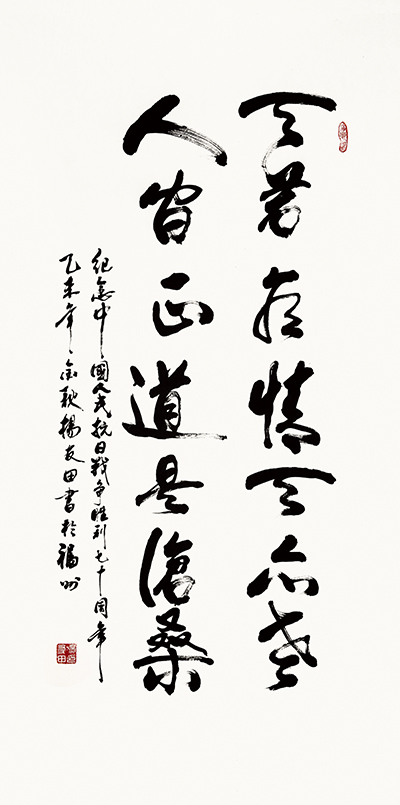 天若有情天亦老
人间正道是沧桑
纪念中国人民抗日战争胜利七十周年
乙未年金秋杨友田书于福州